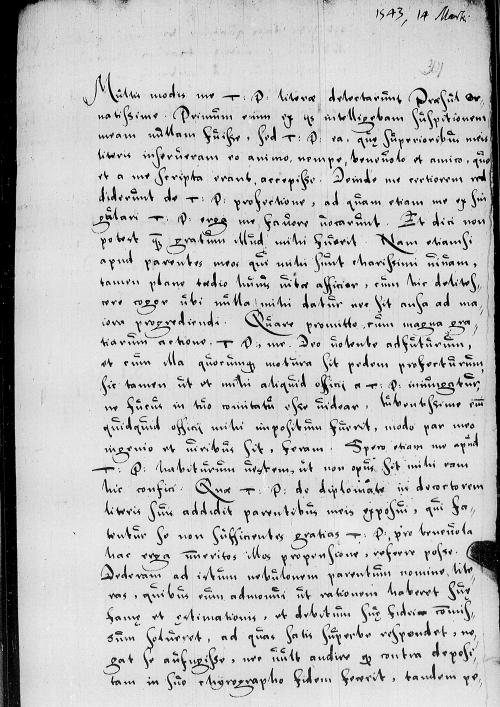 1543, 14 Martii
Multis modis me T: D: literæ delectarunt Præsul or-
natissime. Primum enim ex ijs intelligebam suspitionem
meam nullam fuisse, sed T: D: ea, quæ superioribus meis
literis inserueram eo animo, nempe, beneuolo et amico, quo
et a me scripta erant, accepisse. Deinde me certiorem red
diderunt de T: D: profectione, ad quam etiam me ex sin
gulari T: D: erga me fauore uocarunt. Et dici non
potest quam gratum illud mihi fuerit. Nam etiamsi
apud parentes meos qui mihi sunt charissimi uiuam,
tamen plane tædio huius uitæ afficior, cum hic delites-
cere cogor ubi nulla mihi datur nec sit ansa ad ma
iora progrediendi. Quare promitto, cum magna gra
tiarum actione, T: D: me Deo uolente adfuturum,
et cum illa quocunque motura sit pedem profecturum,
sic tamen ut et mihi aliquid officij a T: D: iniungatur,
ne fucus in tuo comitatu esse uidear, lubentissime enim
quidquid officij mihi impositum fuerit, modo par meo
ingenio et uiribus sit, feram. Spero etiam me apud
T: D: habiturum uestem, ut non opus sit mihi eam
hic confici. Quæ T: D: de diplomate in decoctorem
literis suis addidit parentibus meis exposui, qui fa-
tentur se non sufficientes gratias T: D: pro beneuola
hac erga immeritos illos propensione, referre posse.
Dederam ad istum nebulonem parentum nomine lite
ras, quibus eum admonui ut rationem haberet suæ
famæ et estimationis, et debitum suæ fidei commis-
sum solueret, ad quas satis superbe respondet, ne-
gat se aufugisse, nec uult audire quod contra deposi-
tam in suo chyrographo fidem fecerit, tandem pe-